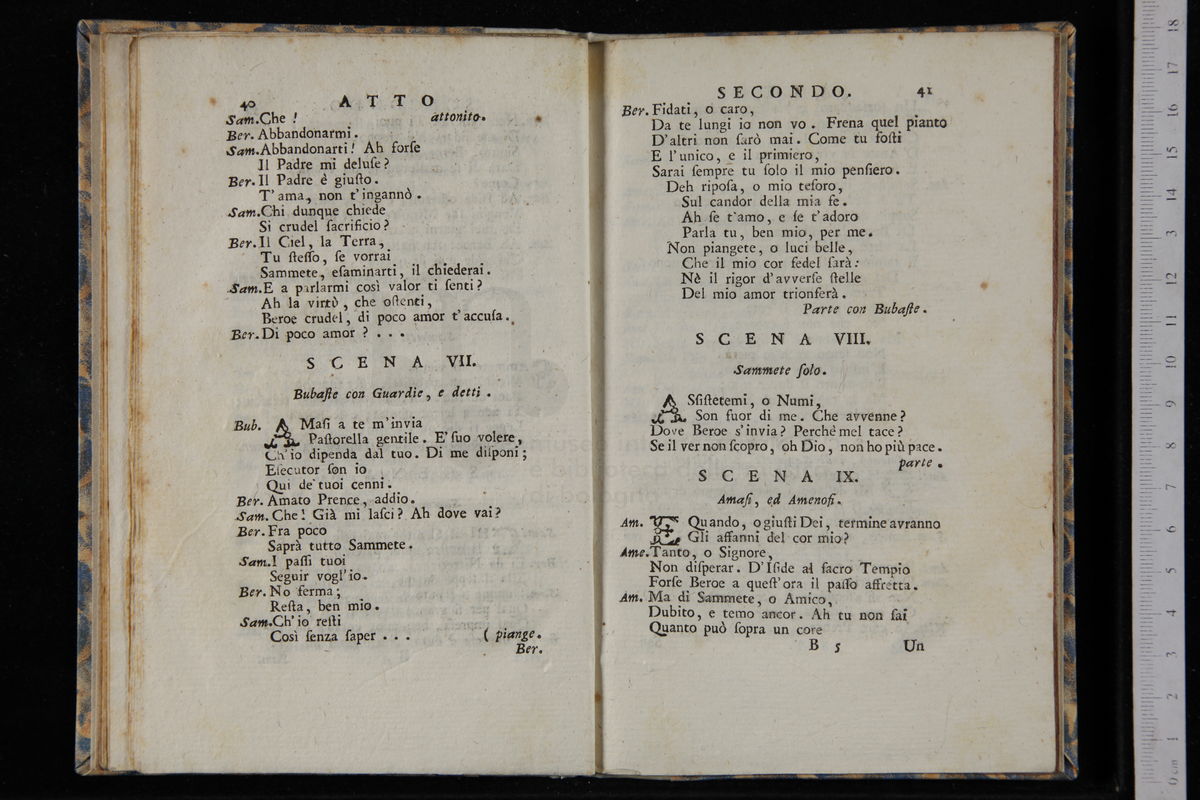 40 ATTO
Sam. Che ! attonito.
Ber. Abbandonarmi.
Sam. Abbandonarti! Ah forſe
Il Padre mi deluſe?
Ber. Il Padre è giuſto.
T'ama, non t'ingannò.
Sam. Chi dunque chiede
Si crudel ſacrificio?
Ber. Il Ciel, la Terra,
Tu ſteſſo, ſe vorrai
Sammete, eſaminarti, il chiederai.
Sam. E a parlarmi così valor ti ſenti?
Ah la virtù, che oſtenti,
Beroe crudel, di poco amor t'accuſa.
Ber. Di poco amor ? . . .
SCENA VII.
Bubaſte con Guardie, e detti.
Bub. AMaſi a te m'invia
Paſtorella gentile. E' ſuo volere,
Ch'io dipenda dal tuo. Di me diſponi;
Eſecutor ſon io
Qui de' tuoi cenni.
Ber. Amato Prence, addio.
Sam. Che! Già mi laſci? Ah dove vai?
Ber. Fra poco
Saprà tutto Sammete.
Sam. I paſſi tuoi
Seguir vogl'io.
Ber. No ferma;
Reſta, ben mio.
Sam. Ch'io reſti
Così ſenza ſaper . . . ( piange.
Ber.
SECONDO. 41
Ber. Fidati, o caro,
Da te lungi io non vo. Frena quel pianto
D'altri non ſarò mai. Come tu foſti
E l'unico, e il primiero,
Sarai ſempre tu ſolo il mio penſiero.
Deh ripoſa, o mio teſoro,
Sul candor della mia fe.
Ah ſe t'amo, e ſe t'adoro
Parla tu, ben mio, per me.
Non piangete, o luci belle,
Che il mio cor fedel ſarà:
Nè il rigor d'avverſe ſtelle
Del mio amor trionferà.
Parte con Bubaſte.
SCENA VIII.
Sammete ſolo.
ASſiſtetemi, o Numi,
Son fuor di me. Che avvenne?
Dove Beroe s'invia? Perchè mel tace?
Se il ver non ſcopro, oh Dio, non ho più pace.
parte.
SCENA IX.
Amaſi, ed Amenofi.
Am. Quando, o giuſti Dei, termine avranno
Gli affanni del cor mio?
Ame. Tanto, o Signore,
Non diſperar. D'Iſide al ſacro Tempio
Forſe Beroe a queſt'ora il paſſo affretta.
Am. Ma di Sammete, o Amico,
Dubito, e temo ancor. Ah tu non ſai
Quanto può ſopra un core
B 5 Un
0 cm 1 2 3 4 5 6 7 8 9 10 11 12 13 14 15 16 17 18